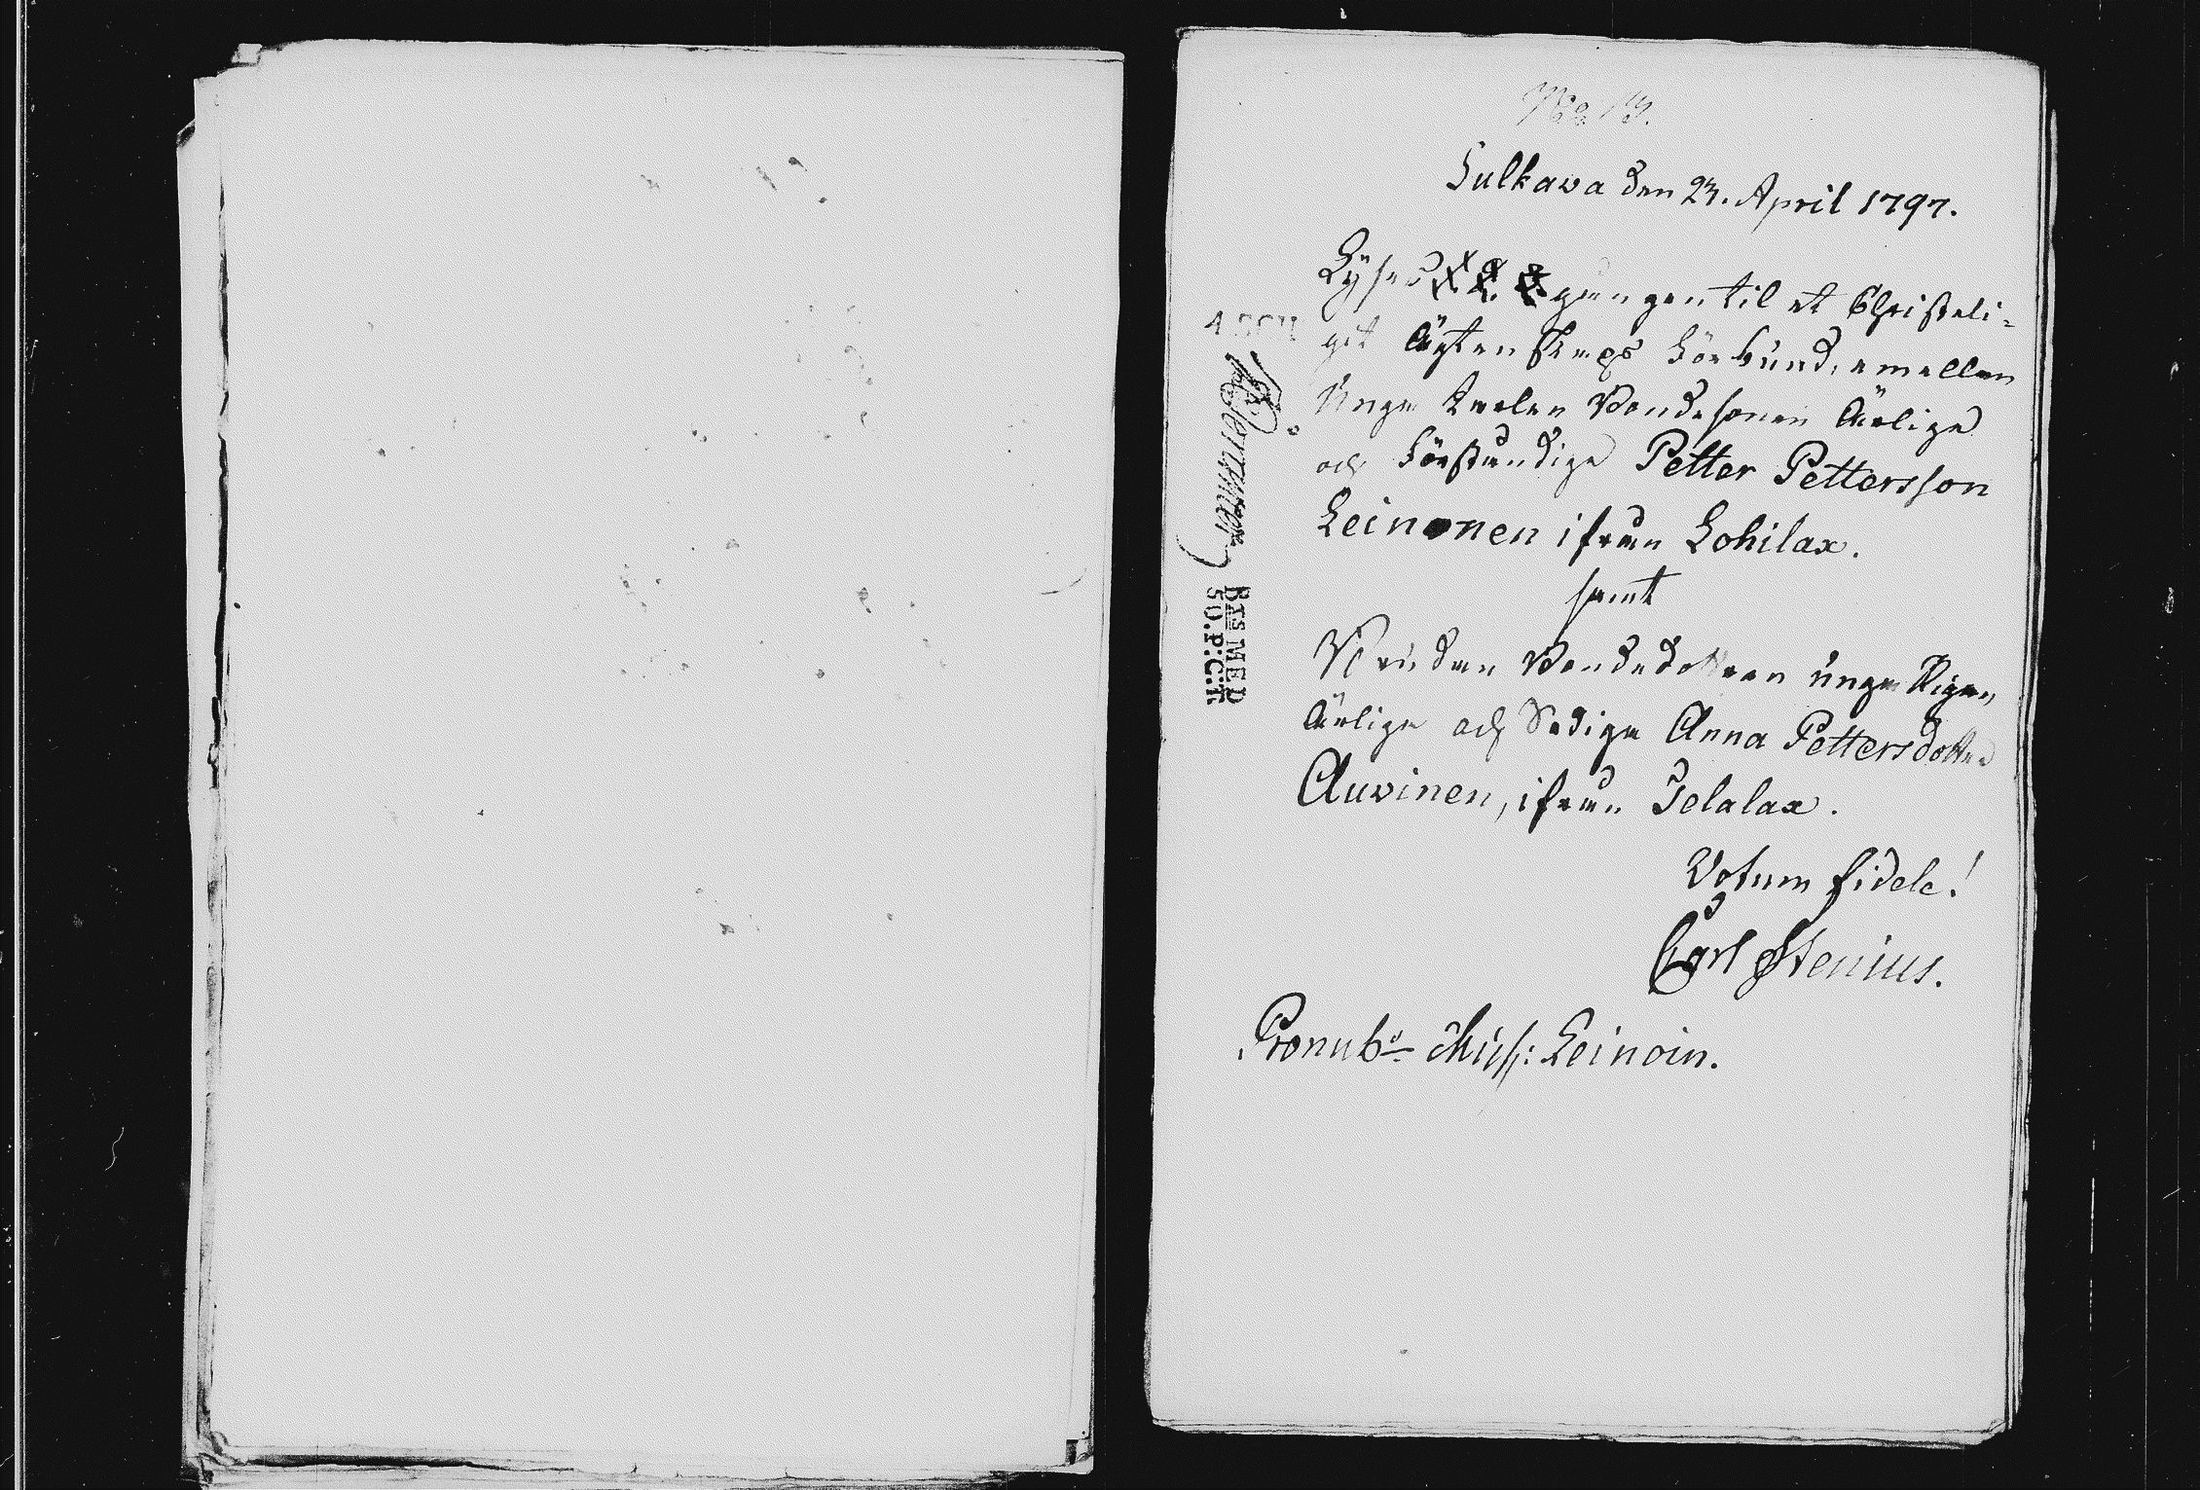 No 13.
Sulkava den 23. April 1797.
Lyses x. x. x. gången til et Christeli=
git Ägtenskaps förbund, emellan
Unga Karlen Bondesonen Ärlige
och förståndige Petter Pettersson
Leinonen ifrån Lohilax.
samt
Bruden Bondedottren unga Pigan,
Ärliga och Sediga Anna Pettersdotter
Auvinen, ifrån Ielalax.
Votum fidele!
Carl Stenius.
Pronub. Leinoin.
DTS MED
50.P:C:T.